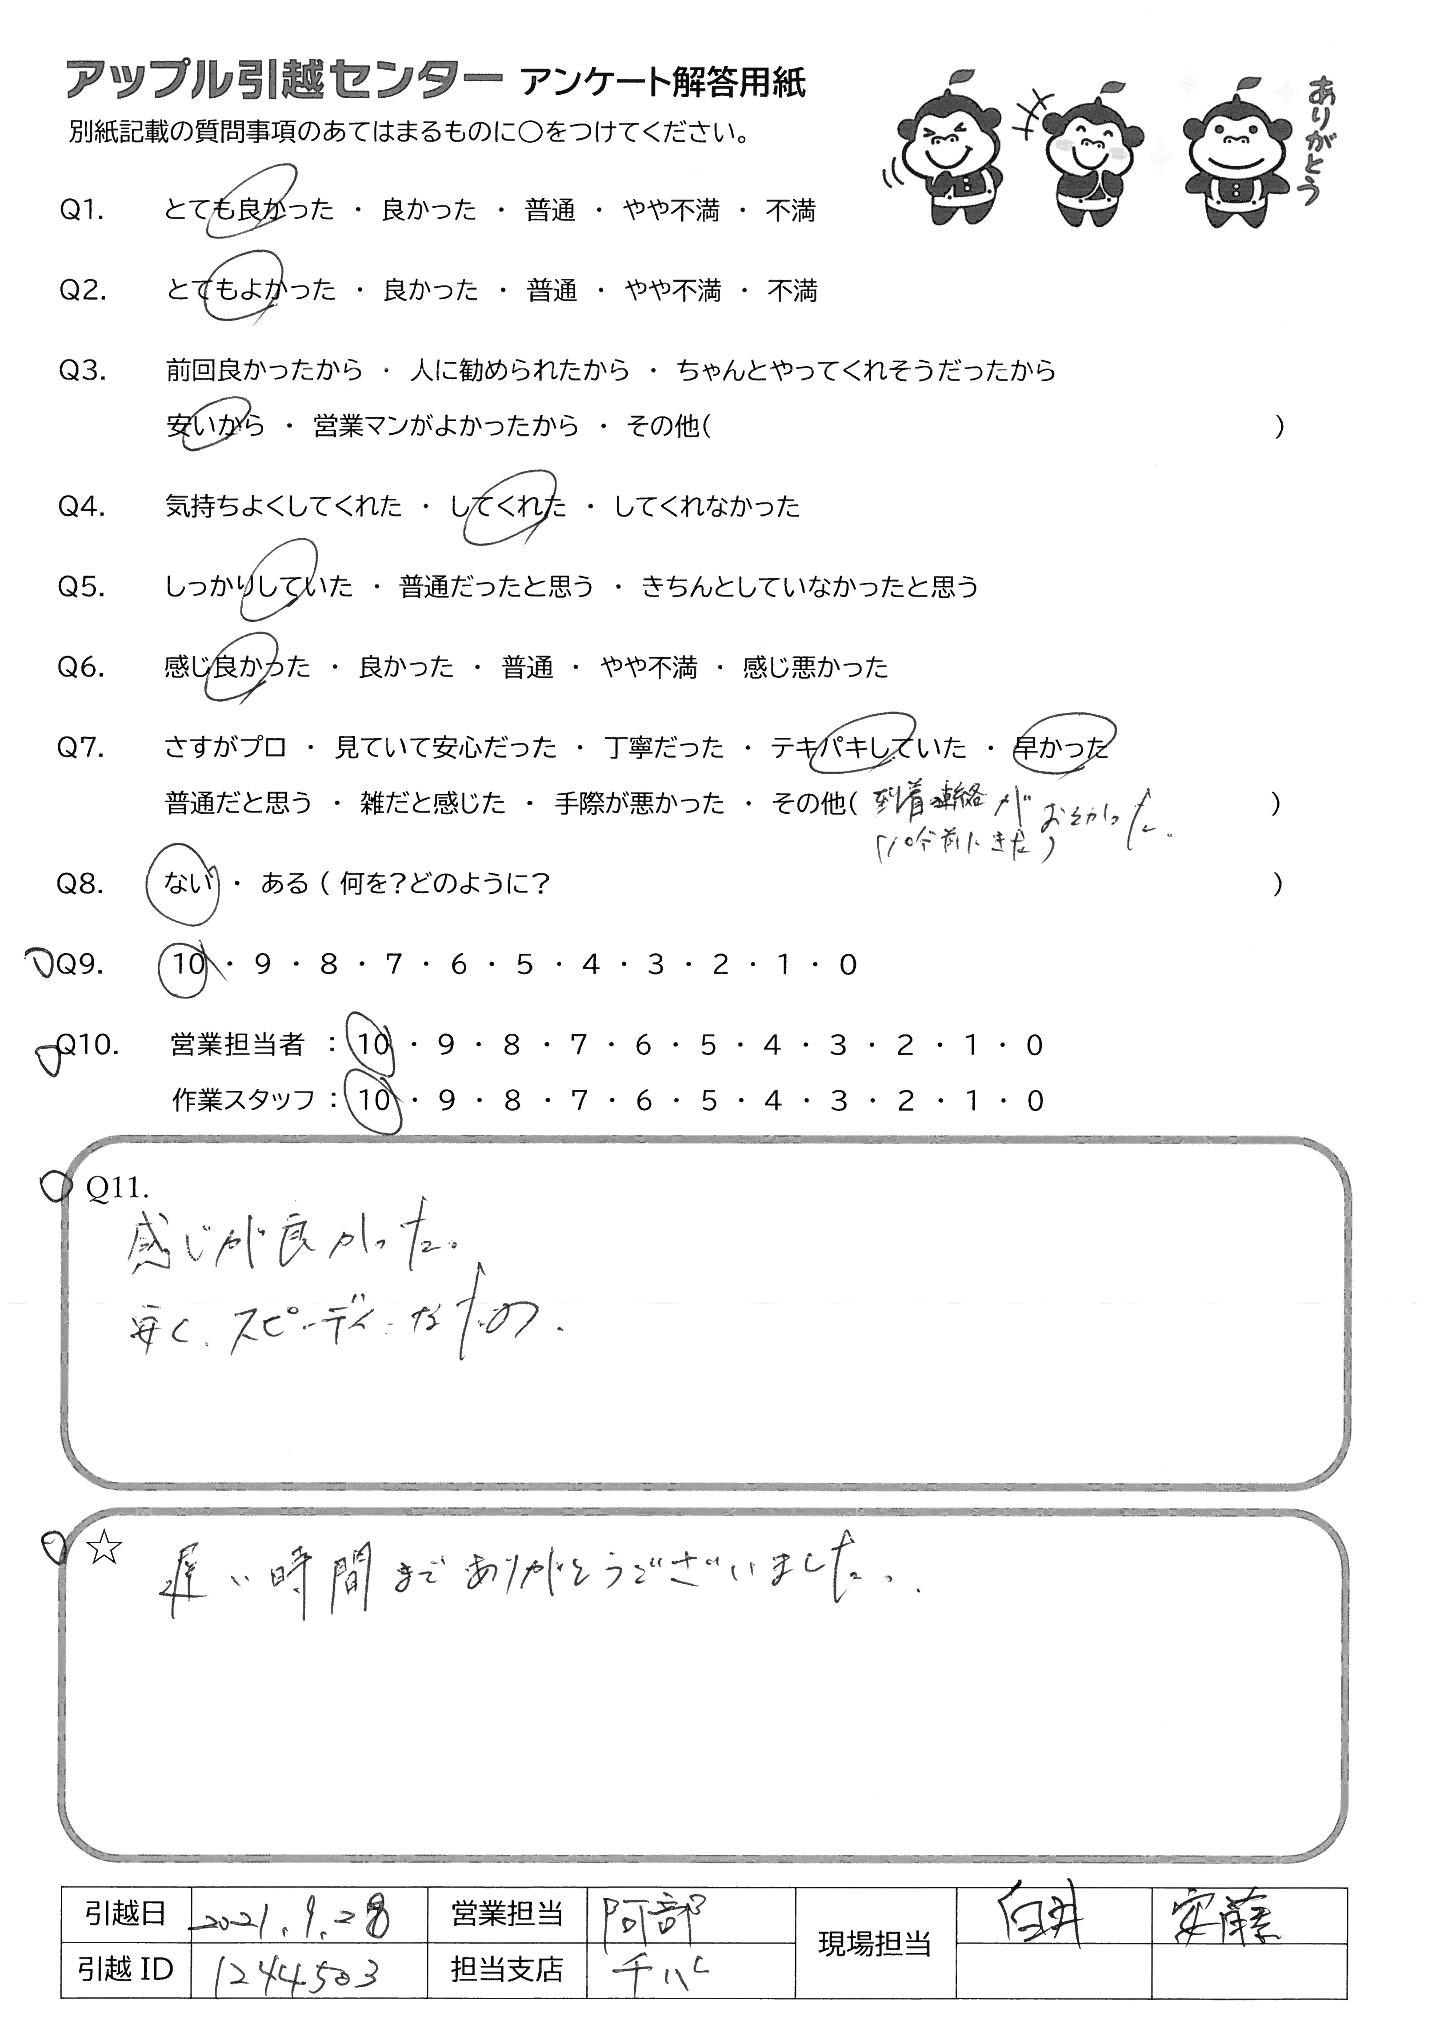 アップル引越センター アンケート解答用紙
別紙記載の質問事項のあてはまるものに○をつけてください。
ありがとう
Q1. とても良かった ・ 良かった ・ 普通 ・ やや不満 ・ 不満
Q2. とてもよかった ・ 良かった ・ 普通 ・ やや不満 ・ 不満
Q3. 前回良かったから ・ 人に勧められたから ・ ちゃんとやってくれそうだったから
安いから ・ 営業マンがよかったから ・ その他( )
Q4. 気持ちよくしてくれた ・ してくれた ・ してくれなかった
Q5. しっかりしていた ・ 普通だったと思う ・ きちんとしていなかったと思う
Q6. 感じ良かった ・ 良かった ・ 普通 ・ やや不満 ・ 感じ悪かった
Q7. さすがプロ ・ 見ていて安心だった ・ 丁寧だった ・ テキパキしていた ・ 早かった
普通だと思う ・ 雑だと感じた ・ 手際が悪かった ・ その他( 到着連絡がおそかった。 )
(10分前にきた)
Q8. ない ・ ある ( 何を?どのように? )
Q9. 10 ・ 9 ・ 8 ・ 7 ・ 6 ・ 5 ・ 4 ・ 3 ・ 2 ・ 1 ・ 0
Q10. 営業担当者 : 10 ・ 9 ・ 8 ・ 7 ・ 6 ・ 5 ・ 4 ・ 3 ・ 2 ・ 1 ・ 0
作業スタッフ : 10 ・ 9 ・ 8 ・ 7 ・ 6 ・ 5 ・ 4 ・ 3 ・ 2 ・ 1 ・ 0
Q11.
感じが良かった。
安く、スピーディーなため.
☆ 遅い時間までありがとうございました。
引越日 2021.9.28 営業担当 阿部 現場担当 臼井 安藤
引越ID 1244503 担当支店 千ハ"